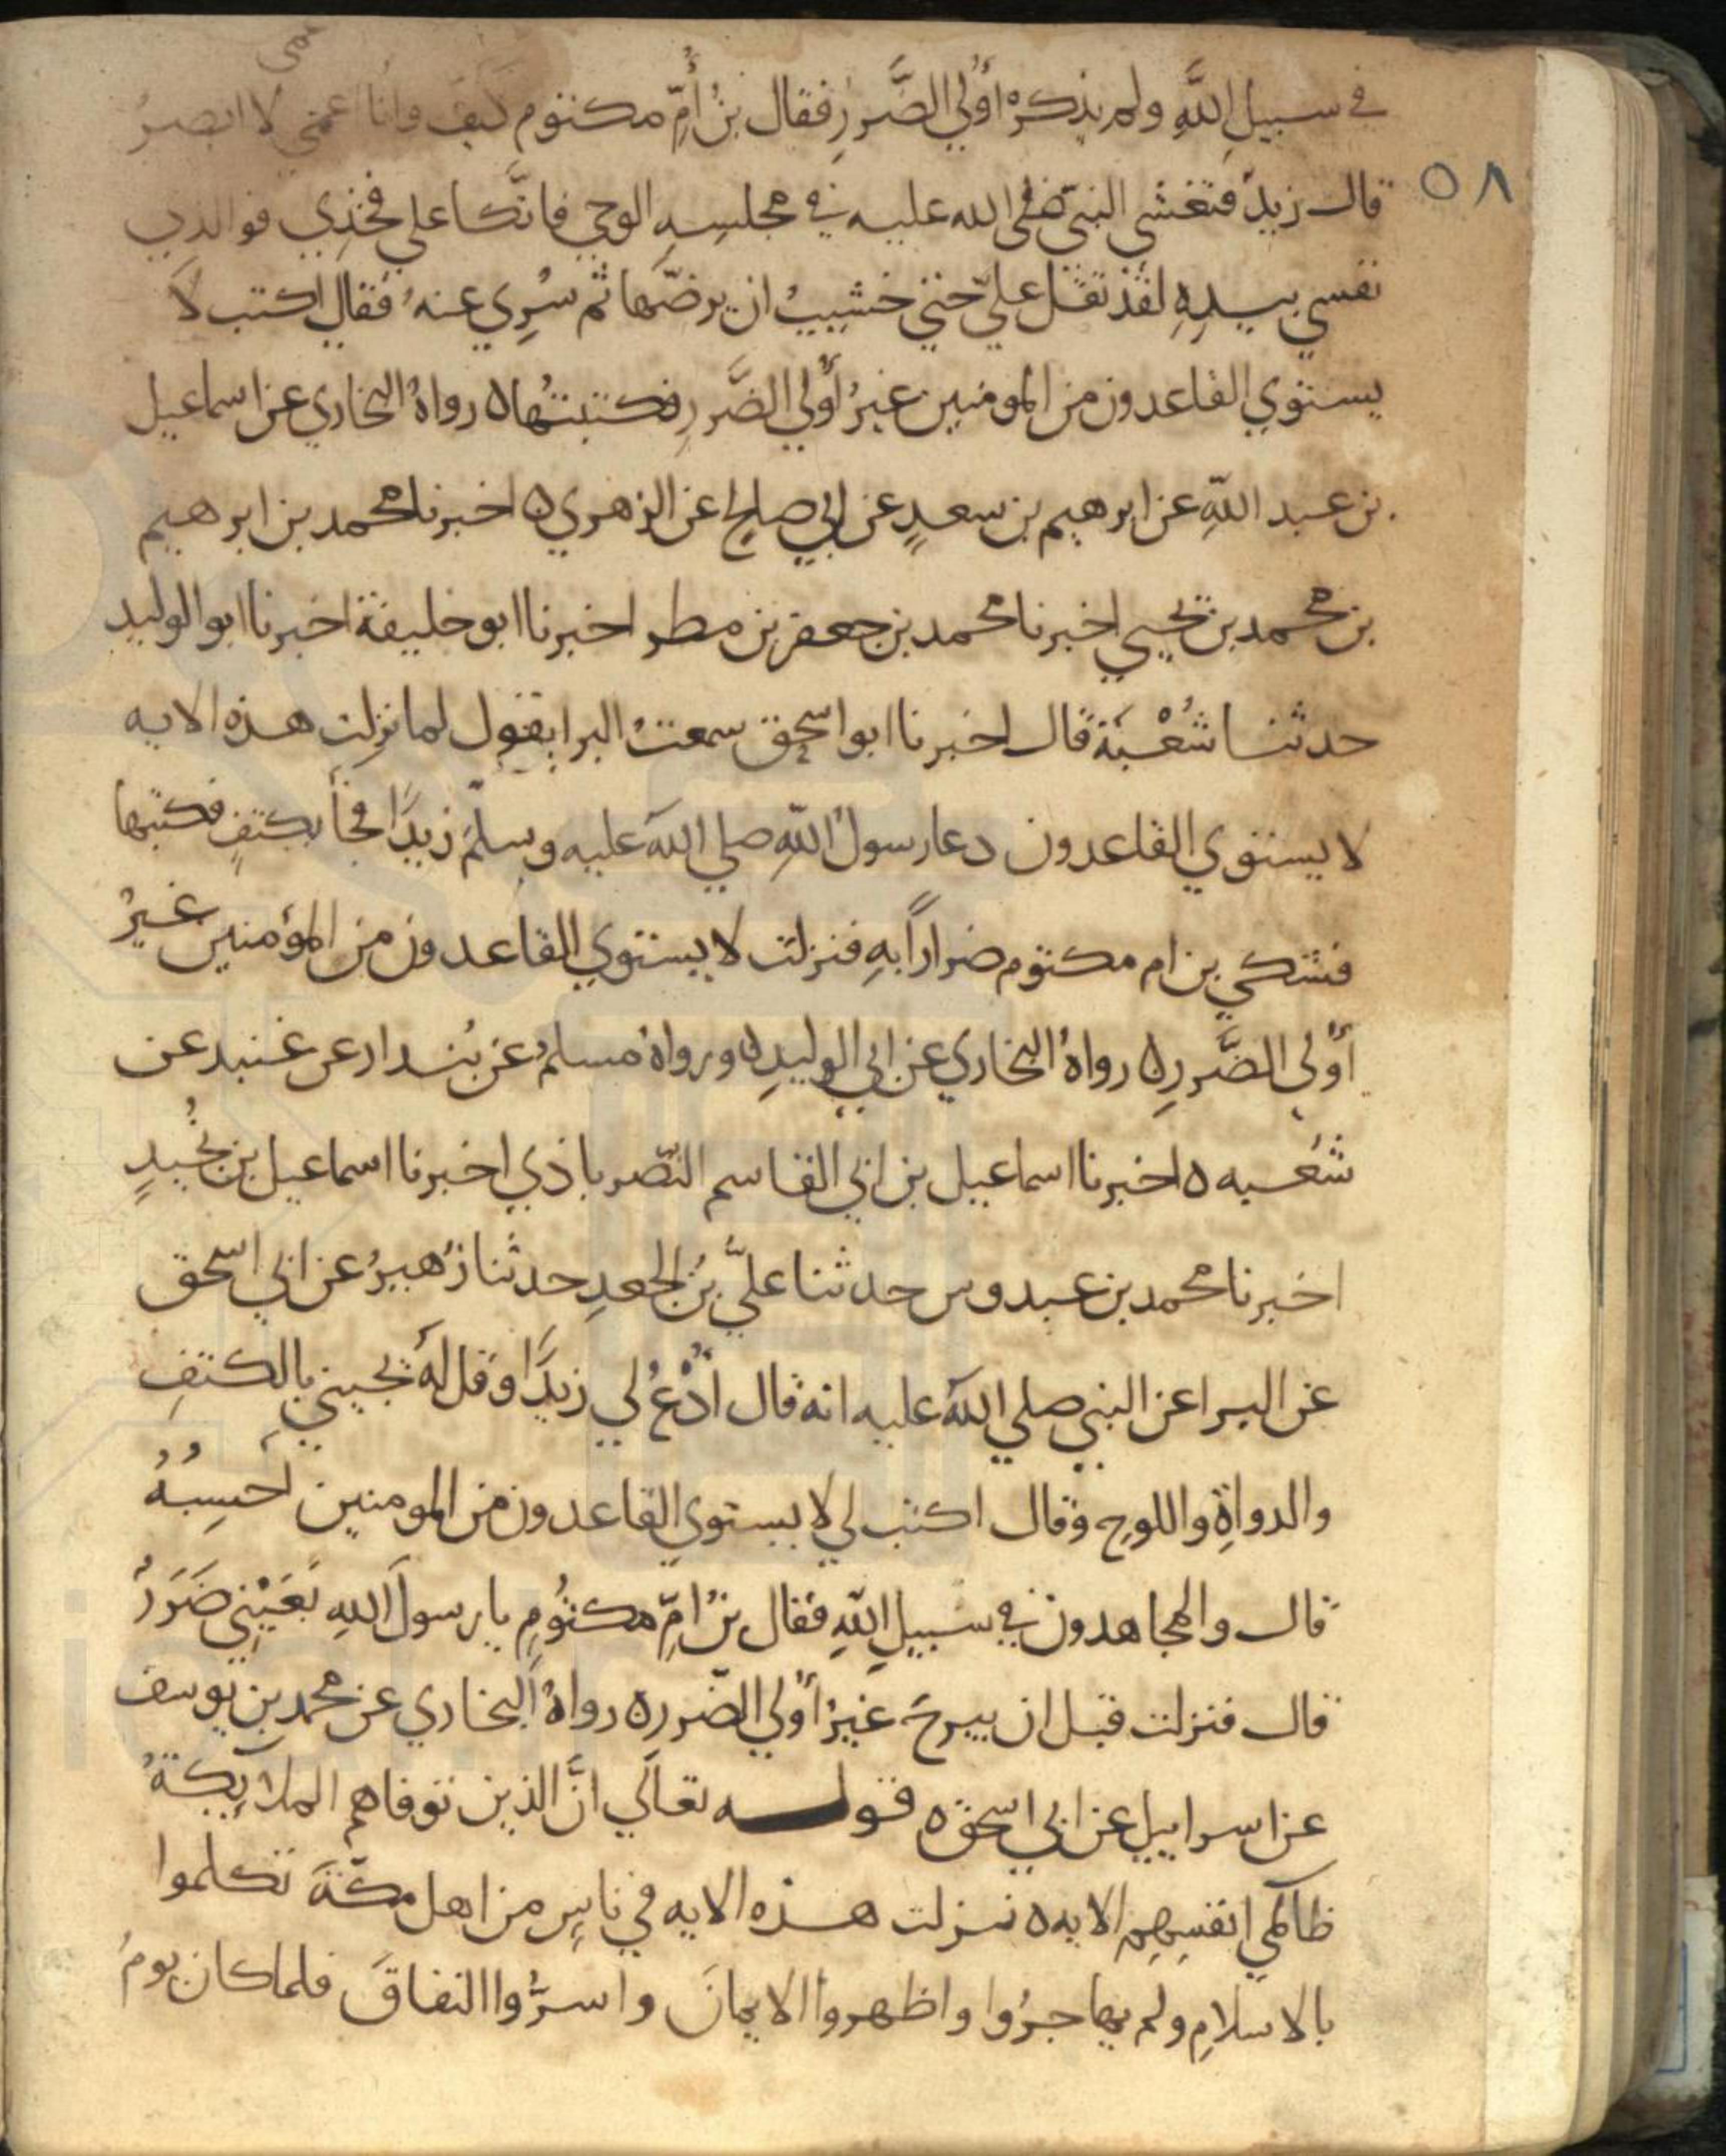 عمى
في سبيل اللَّهِ ولم يذكره أُولي الضَّررِ فقال بنُ أُمِّ مكتوم كيف وانا اعمي لا ابصرُ
٥٨
قال زيدٌ فتغشي النبيّ صلى الله عليه في مجلسِهِ الوحي فاتَّكا علي فخِذِي فوالذي
نفسي بيدِهِ لقد ثقل عليّ حتي خشيتُ ان يرضّها ثم سُرِي عنهُ فقال اكتب لا
يستوي القاعدون من المومنين غيرُ أُولي الضَّررِ فكتبتُها ه رواهُ البخاري عن اسماعيل
بن عبد اللَّهِ عن ابرهيم بن سعدٍ عن ابي صالح عن الزهري ه اخبرنا محمد بن ابرهيم
بن محمد بن يحيي اخبرنا محمد بن جعفر بن مطر اخبرنا ابو خليفة اخبرنا ابو الوليد
حدثنا شُعْبَة قال اخبرنا ابو اسحق سمعتُ البرا يقول لما نزلت هذه الايه
لا يستوي القاعدون دعا رسولُ اللَّهِ صلي اللَّه عليه وسلَّم زيدًا فجأ بكتفٍ فكتبها
فشكي بن ام مكتوم ضراراً بهِ فنزلت لا يستوي القاعدون من المؤمنين غيرُ
أُولي الضَّررِ ه رواهُ البخاري عن ابي الوليدِ ه ورواهُ مسلمٌ عن بُندار عن غندر عن
شُعبه ه اخبرنا اسماعيل بن ابي القاسم النّصرباذي اخبرنا اسماعيل بن نُجَيدٍ
اخبرنا محمد بن عبدوس حدثنا عليُّ بنُ الجعدِ حدثنا زُهيرُ عن ابي اسحق
عن البرا عن النبي صلي اللَّه عليه انه قال اُدْعُ لي زيدًا وقل لهُ يجيني بالكتفِ
والدواةِ واللوحِ وقال اكتب لي لا يستوي القاعدون من المومنين احسِبُهُ
قال والمجاهدون في سبيلِ اللَّهِ فقال بنُ اُمِّ مكتُومٍ يا رسولَ اللَّهِ بعَيْنِي ضَرَرٌ
قال فنزلت قبل ان يبرحَ غيرُ أُولي الضّررِ ه رواهُ البخاري عن محمد بن يوسف
عن اسراييل عن ابي اسحق ه قوله تعالَي انَّ الذين توفاهم الملآيِكَةُ
ظالمي انفسِهِم الايه ه نزلت هذه الايه في ناسٍ من اهل مكَّةَ تكلموا
بالاسلامِ ولم يهاجرُوا واظهروا الايمانَ واسرُّوا النفاقَ فلما كان يومُ